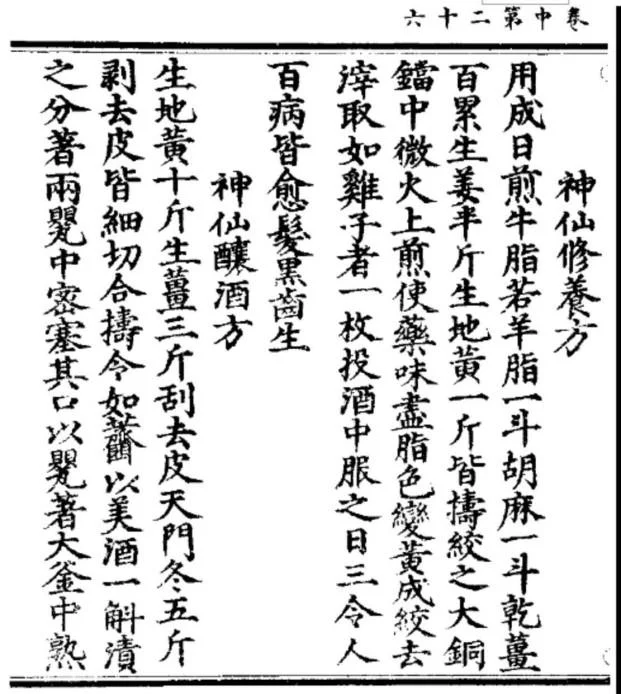 卷中第二十六
神仙修養方
用成日煎牛脂若羊脂一斗胡麻一斗乾薑
百累生姜半斤生地黃一斤皆擣絞之大銅
鐺中微火上煎使藥味盡脂色變黃成絞去
滓取如雞子者一枚投酒中服之日三令人
百病皆愈髮黑齒生
神仙釀酒方
生地黃十斤生薑三斤刮去皮天門冬五斤
剥去皮皆細切合擣令如虀以美酒一斛漬
之分著兩甖中密塞其口以甖著大釜中熟